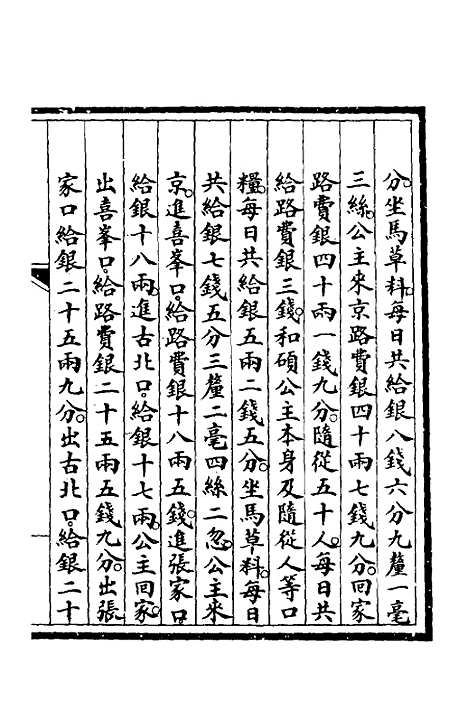 分。坐馬草料。每日共給銀八錢六分九釐一毫
三絲。公主來京路費銀四十兩七錢九分。回家
路費銀四十兩一錢九分。隨從五十人。每日共
給路費銀三錢。和碩公主本身及隨從人等口
糧。每日共給銀五兩二錢五分。坐馬草料。每日
共給銀七錢五分三釐二毫四絲二忽。公主來
京。進喜峯口。給路費銀十八兩五錢。進張家口
給銀十八兩。進古北口。給銀十七兩。公主回家。
出喜峯口。給路費銀二十五兩五錢九分。出張
家口給銀二十五兩九分。出古北口。給銀二十